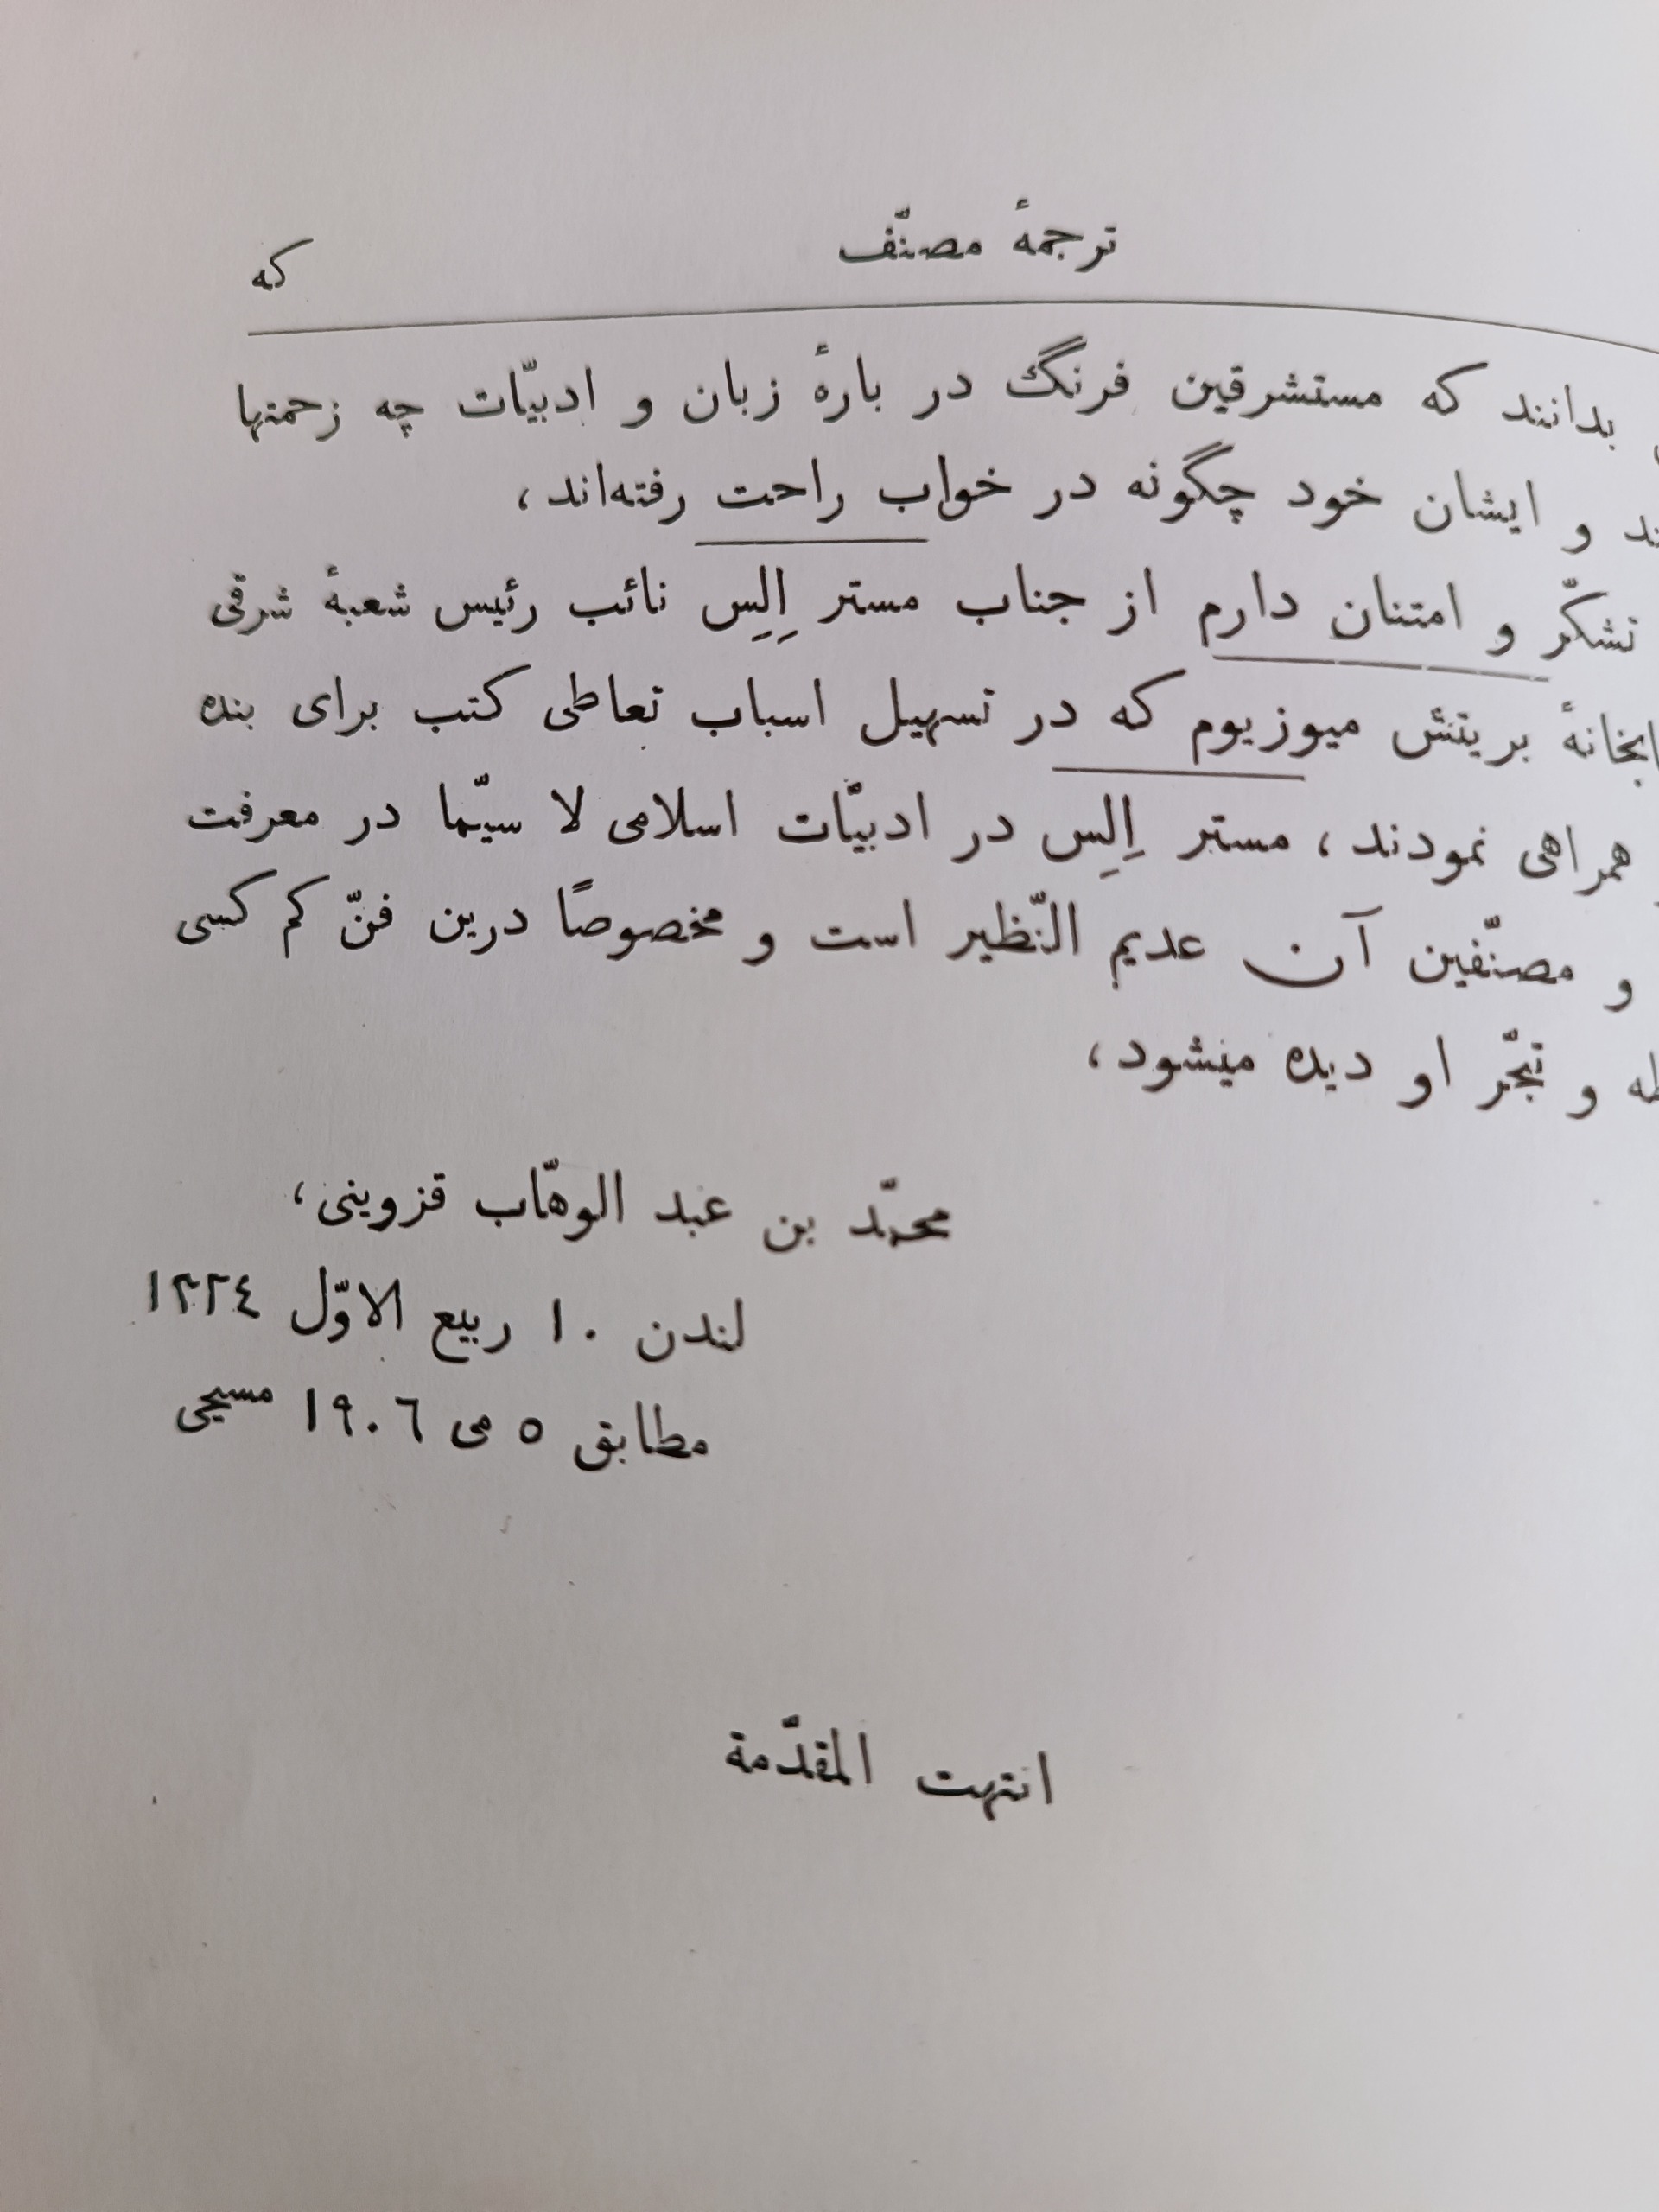 ترجمۀ مصنّف که
بدانند که مستشرقین فرنگ در بارۀ زبان و ادبیّات چه زحمتها
و ایشان خود چگونه در خواب راحت رفته‌اند،
تشکّر و امتنان دارم از جناب مستر اِلِس نائب رئیس شعبۀ شرقی
بریتش میوزیوم که در تسهیل اسباب تعاطی کتب برای بنده
همراهی نمودند، مستر اِلِس در ادبیّات اسلامی لا سیّما در معرفت
و مصنّفین آن عدیم النّظیر است و مخصوصًا درین فنّ کم کسی
و تبحّر او دیده میشود،
محمّد بن عبد الوهّاب قزوینی،
لندن ۱۰ ربیع الاوّل ١٣٢٤
مطابق ٥ می ١٩٠٦ مسیحی
انتهت المقدّمة